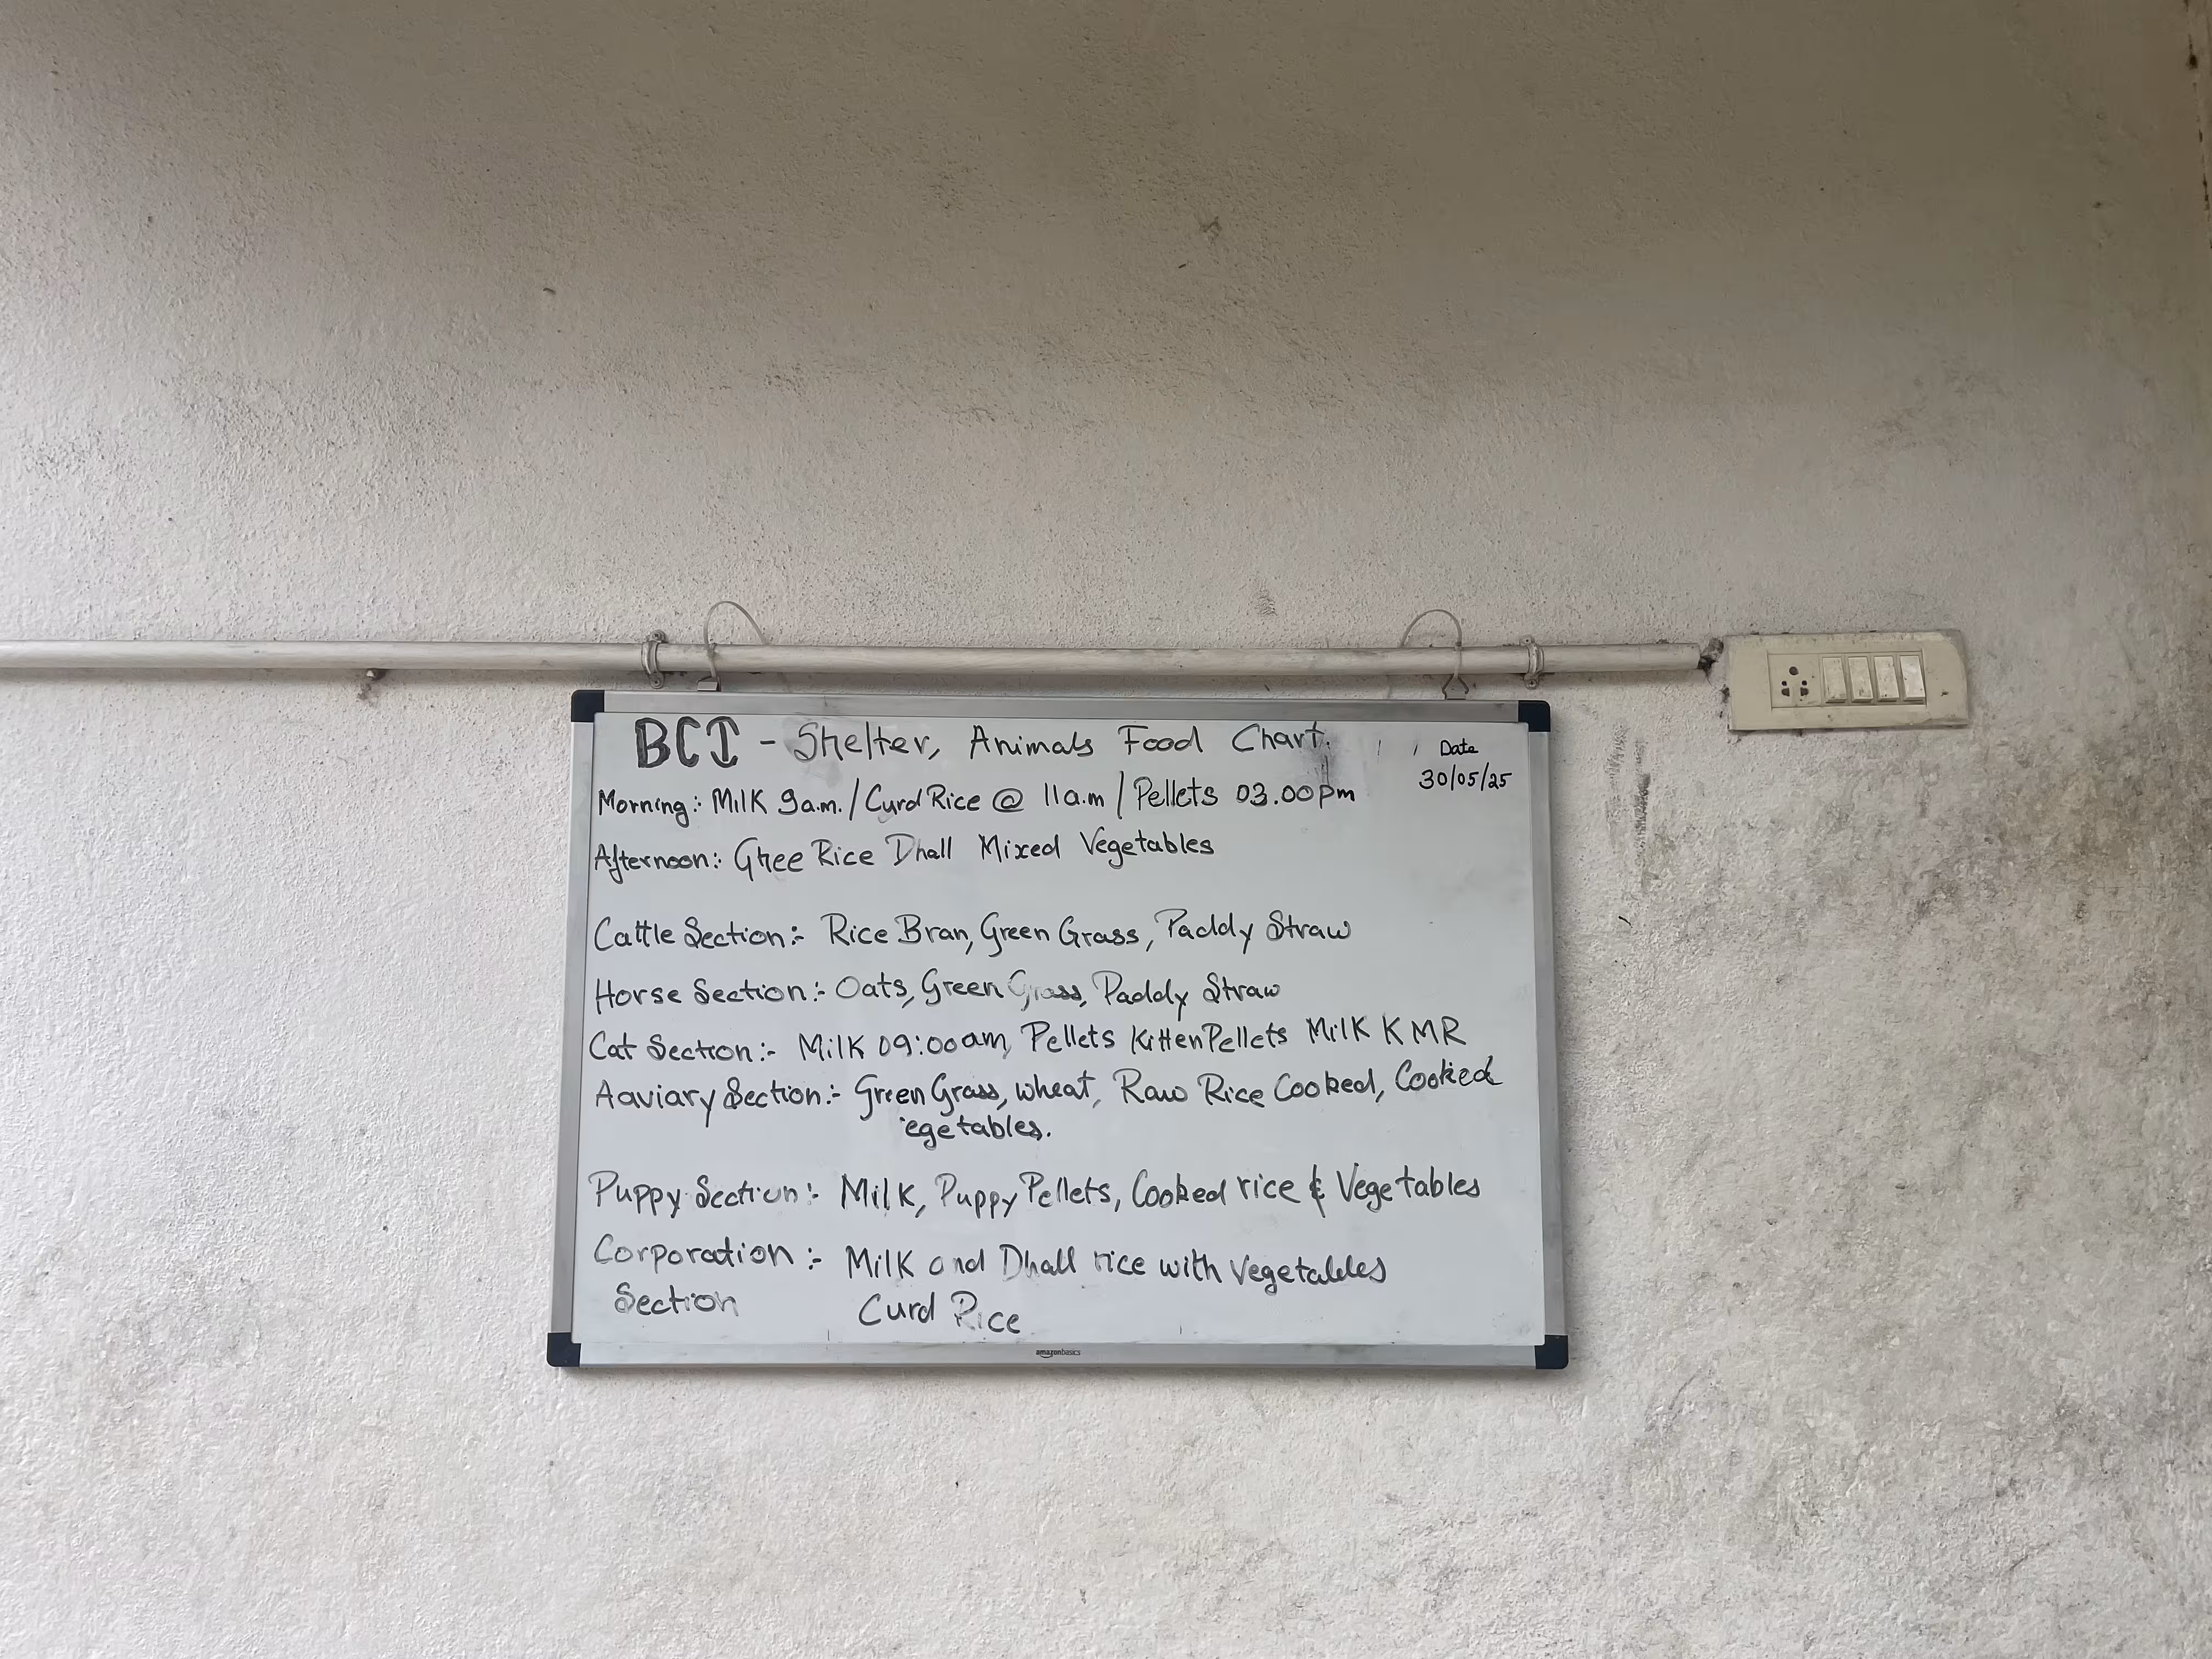 BCI - Shelter, Animals Food Chart.
Date
30/05/25
Morning:- Milk 9a.m. / Curd Rice @ 11a.m / Pellets 03.00pm
Afternoon:- Ghee Rice Dhall Mixed Vegetables
Cattle Section:- Rice Bran, Green Grass, Paddy Straw
Horse Section:- Oats, Green Grass, Paddy Straw
Cat Section:- Milk 09:00am, Pellets Kitten Pellets Milk KMR
Aaviary Section:- Green Grass, wheat, Raw Rice Cooked, Cooked
egetables.
Puppy Section:- Milk, Puppy Pellets, Cooked rice & Vegetables
Corporation :- Milk and Dhall rice with Vegetables
Section Curd Rice
amazonbasics